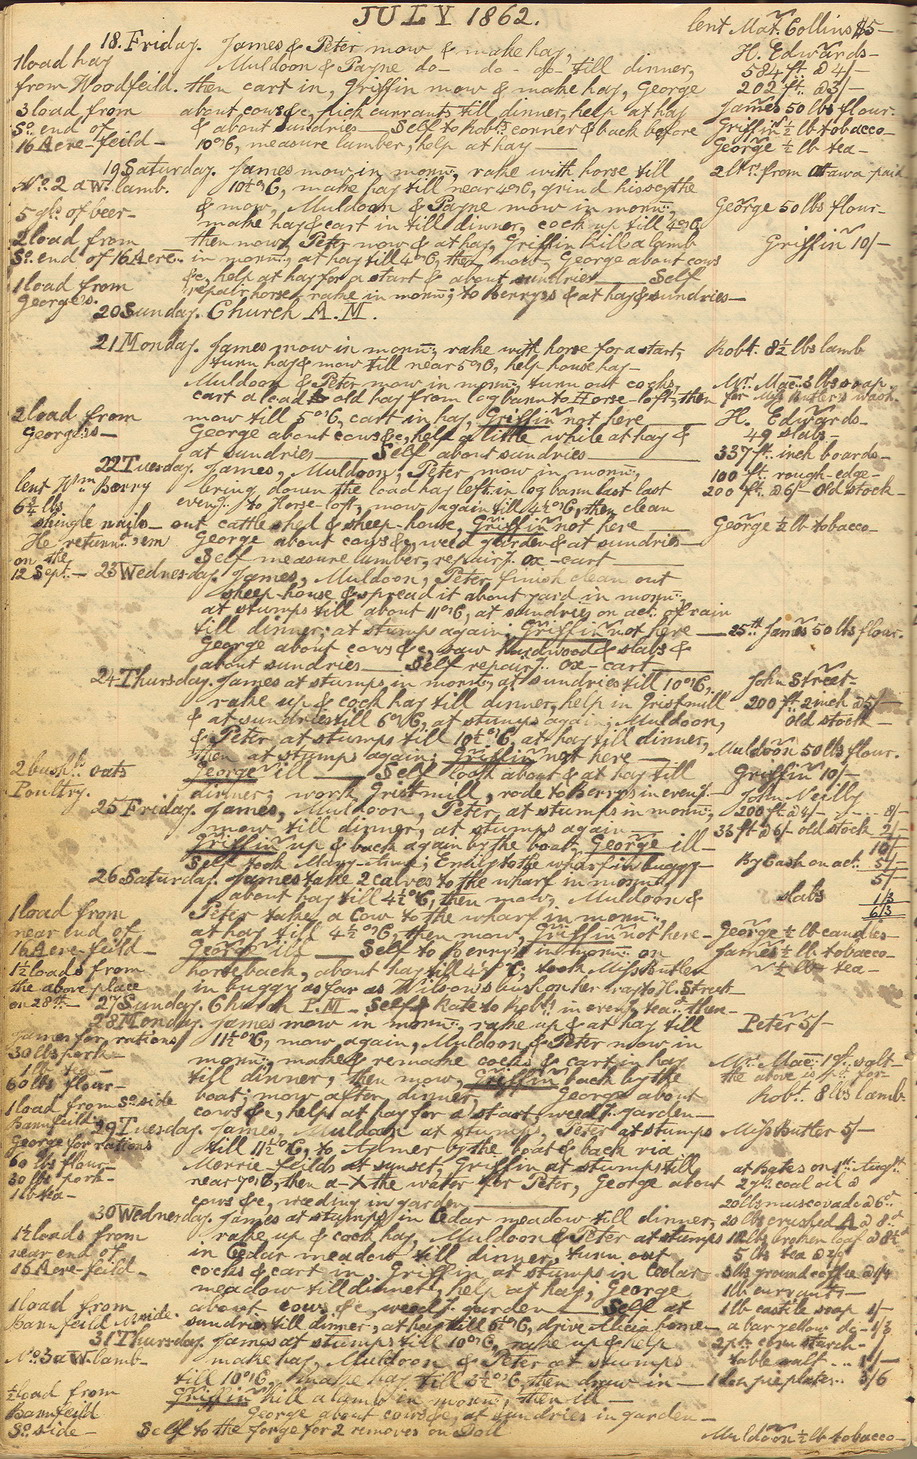 JULY 1862.
lent Mat. Collins $5—
18. Friday. James & Peter mow & make hay,
H. Edwards—
1 load hay
Muldoon & Payne do— do— do— till dinner,
584 ft. @ 4/—
from Woodfeild.
then cart in, Griffin mow & make hay, George
202 ft. @ 3/—
3 load from
about cows &c, pick currants till dinner, help at hay
James 50 lbs flour—
So. end of
& about sundries— Self to Robts. corner & back before
Griffin ½ lb tobacco—
16 Acre-feild—
10 o'C, measure lumber, help at hay—
George ½ lb tea—
19 Saturday. James mow in mornn:, rake with horse till
from Ottawa paid
No. 2 a W. lamb.
10½ o'C, make hay till near 4 o'C, grind his scythe
5 gls. of beer—
& mow, Muldoon & Payne mow in mornn:,
George 50 lbs flour—
make hay & cart in till dinner, cock up till 4 o'C
2 load from
then mow, Peter mow & at hay, Griffin kill a lamb
Griffin 10/—
So. end of 16 Acre—
in mornn:, at hay till 4 o'C, then mow, George about cows
1 load from
&c, help at hay for a start & about sundries— Self
George's.
repair horse rake in mornn:, to Berrys & at hay & sundries—
20 Sunday. Church A.M.
21 Monday. James mow in mornn:, rake with horse for a start,
Robt. 8½ lbs lamb
turn hay & mow till near 5 o'C, help house hay—
Muldoon & Peter mow in mornn:, turn out cocks,
Mr. Mac. 3 lbs soap
cart a load old hay from log barn to Horse-loft, then
for Miss Butler's wash.
2 load from
mow till 5 o'C, cart in hay, Griffin not here
H. Edwards—
George's—
George about cows &c, help a little while at hay &
49 slabs—
at sundries— Self about sundries—
337 ft. inch boards—
22 Tuesday. James, Muldoon, Peter mow in mornn:,
100 ft. rough-edge—
lent Wm Berry
bring down the load hay left in log barn last last
200 ft. @ 6/— Old stock—
6¾ lbs.
eveng: to Horse-loft, mow again till 4½ o'C, then clean
shingle nails—
out cattle shed & sheep-house, Griffin not here—
George ½ lb tobacco—
He returnd. 'em
George about cows &c, weed garden & at sundries—
on the
Self measure lumber, repairg. ox-cart—
12 Sept.—
23 Wednesday. James, Muldoon, Peter finish clean out
sheep-house & spread it about yard in mornn:,
at stumps till about 11 o'C, at sundries on act. of rain
till dinner, at stumps again, Griffin not here—
25th James 50 lbs flour.
George about cows &c, saw Hardwood & slabs &
about sundries— Self repairg. ox-cart—
24 Thursday. James at stumps in mornn:, at sundries till 10 o'C,
John Street—
rake up & cock hay till dinner, help in Gristmill
200 ft. 2 inch @ 5/—
& at sundries till 6 o'C, at stumps again, Muldoon,
Old stock—
& Peter at stumps till 10½ o'C, at hay till dinner,
then at stumps again, Griffin not here—
Muldoon 50 lbs flour.
2 bushls. oats
George ill— Self look about & at hay till
Griffin 10/—
Poultry.
dinner, work Gristmill, rode to Berrys in eveng:—
John Neilly
25 Friday. James, Muldoon, Peter, at stumps in mornn:,
200 ft @ 4/— 8/—
mow till dinner, at stumps again—
33 ft @ 6/— old stock 2/—
Griffin up & back again by the boat, George ill—
10/—
Self took Mary-Ann, Emily to the wharf in buggy—
By Cash on act. 5/—
26 Saturday. James take 2 calves to the wharf in mornn:,
5/—
about hay till 4½ o'C, then mow, Muldoon &
slabs 1/3
1 load from
Peter take a Cow to the wharf in mornn:,
6/3
near end of
at hay till 4½ o'C, then mow, Griffin not here—
George ½ lb candles—
16 Acre-feild—
George ill— Self to Berry's in mornn: on
James ½ lb tobacco—
1½ loads from
horseback, about hay till 4 o'C, took Miss Butler
½ lb tea—
the above place
in buggy as far as Wilson's bush on her way to H. Street—
on 28th—
27 Sunday. Church P.M.— Self & Kate to Robts. in eveng, tea'd then—
28 Monday. James mow in mornn:, rake up & at hay till
Peter 5/—
James for rations
11½ o'C, mow again, Muldoon & Peter mow in
30 lbs pork—
mornn:, make & remake cocks & cart in hay
1 lb tea—
till dinner, then mow, Griffin back by the
60 lbs flour—
boat, mow after dinner, George about
Robt. 8 lbs lamb
1 load from So. side
cows &c, help at hay for a start, weedg. garden—
Barnfeild
29 Tuesday. James, Muldoon at stumps, Peter at stumps
Miss Butler 5/—
George for rations
till 11½ o'C, to Aylmer by the boat & back via
60 lbs flour—
Merrie-feilds at sunset, Griffin at stumps till
at Bates on 1st. Augst.
30 lbs pork—
near 7 o'C, then a-X the water for Peter, George about
2 gls. coal oil @
1 lb tea—
cows &c, weeding in garden—
20 lbs muscovado @ 6d
30 Wednesday. James at stumps in Cedar meadow till dinner,
20 lbs crushed A @ 8d
1½ loads from
rake up & cock hay, Muldoon & Peter at stumps
12 lbs broken loaf @ 8½d
near end of
in Cedar meadow till dinner, turn out
5 lbs tea @
16 Acre-feild—
cocks & cart in, Griffin at stumps in Cedar
3 lbs ground coffee @ 1/4
meadow till dinner, help at hay, George
1 lb currants—
1 load from
about cows &c, weedg. garden— Self at
1 lb castile soap 1/—
Barnfeild N. side—
sundries till dinner, at hay till 6 o'C, drive Alicia home—
a bar yellow do— 1/3
31 Thursday. James at stumps till 10 o'C, rake up & help
2 pts. corn starch—
No. 3 a W. lamb—
make hay, Muldoon & Peter at stumps
table salt .. 1/—
till 10 o'C, make hay till 5½ o'C, then draw in—
1 doz pie plates .. 3/6
½ load from
Griffin kill a lamb in mornn:, then ill—
Barnfeild
George about cows &c, at sundries in garden—
So. side—
Self to the forge for 2 removes on Doll
Muldoon ½ lb tobacco—